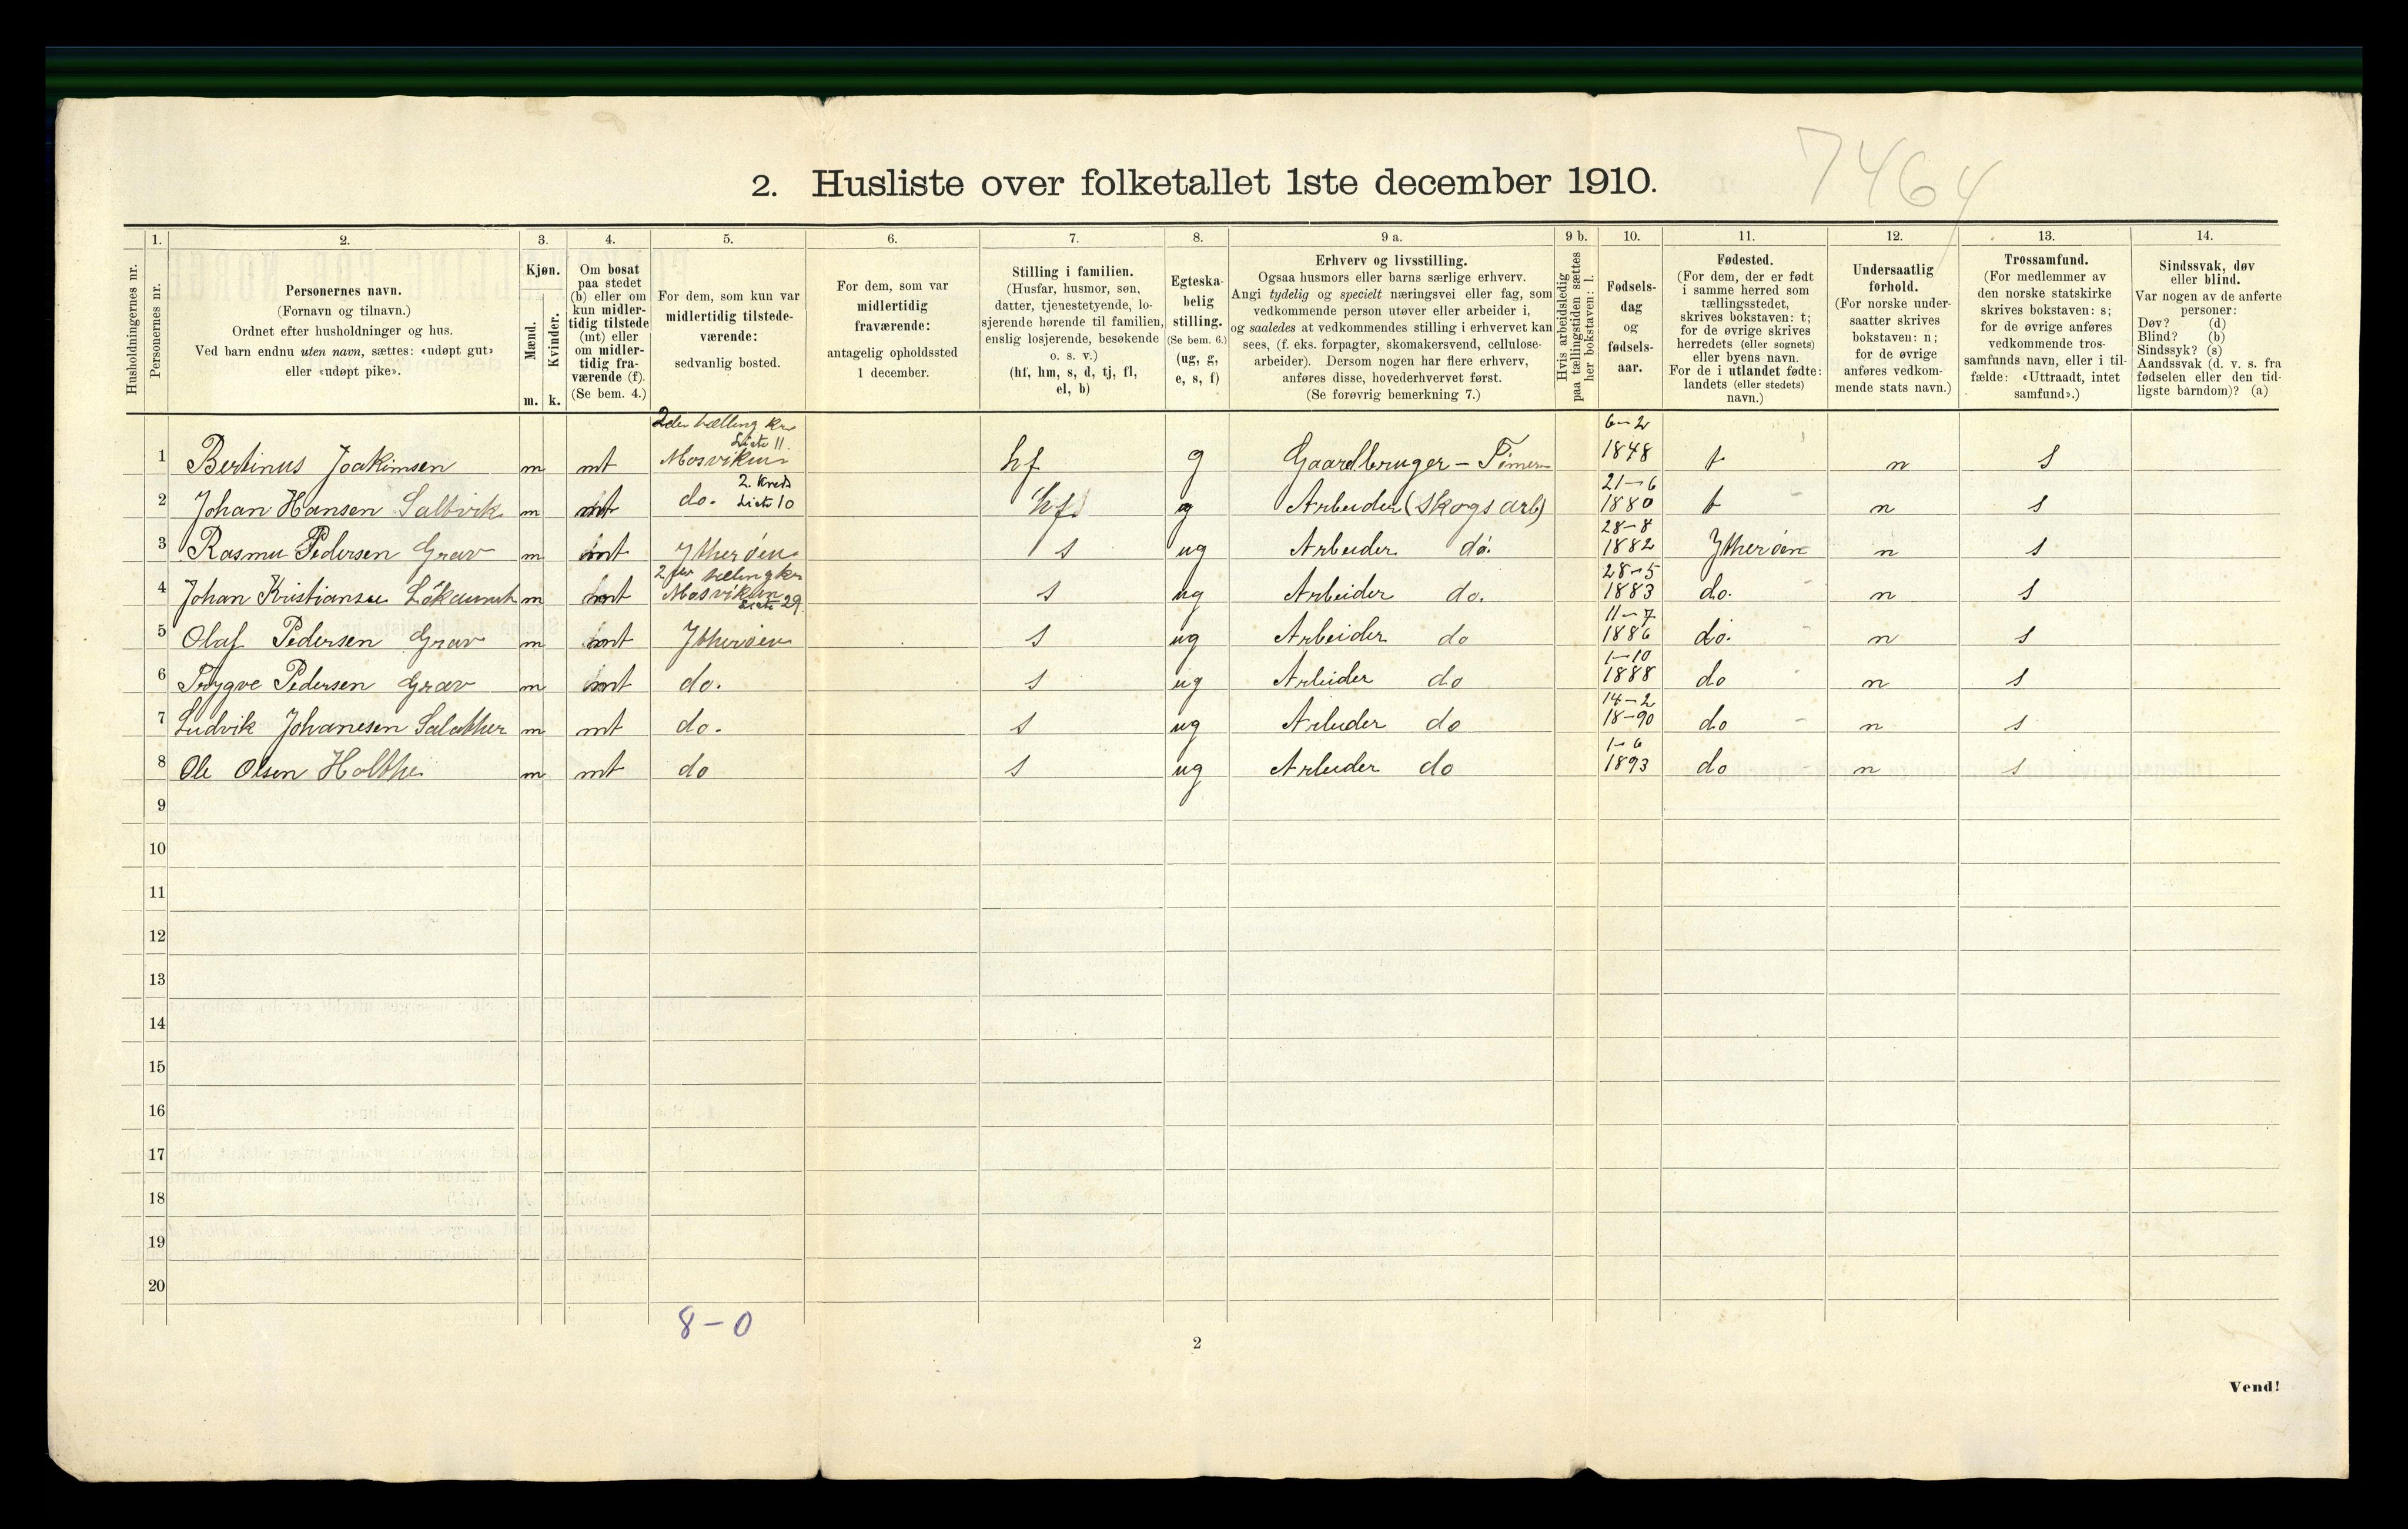 7464
2. Husliste over folketallet 1ste december 1910.
Husholdningernes nr.
1.
Personernes nr.
2.
Personernes navn.
(Fornavn og tilnavn.)
Ordnet efter husholdninger og hus.
Ved barn endnu uten navn, sættes: «udøpt gut»
eller «udøpt pike».
3.
Kjøn.
Mænd.
Kvinder.
m. k.
4.
Om bosat
paa stedet
(b) eller om
kun midler-
tidig tilstede
(mt) eller
om midler-
tidig fra-
værende (f).
(Se bem. 4.)
5.
For dem, som kun var
midlertidig tilstede-
værende:
sedvanlig bosted.
6.
For dem, som var
midlertidig
fraværende:
antagelig opholdssted
1 december.
7.
Stilling i familien.
(Husfar, husmor, søn,
datter, tjenestetyende, lo-
sjerende hørende til familien,
enslig losjerende, besøkende
o. s. v.)
(hf, hm, s, d, tj, fl,
el, b)
8.
Egteska-
belig
stilling.
(Se bem. 6.)
(ug, g,
e, s, f)
9 a.
Erhverv og livsstilling.
Ogsaa husmors eller barns særlige erhverv.
Angi tydelig og specielt næringsvei eller fag, som
vedkommende person utøver eller arbeider i,
og saaledes at vedkommendes stilling i erhvervet kan
sees, (f. eks. forpagter, skomakersvend, cellulose-
arbeider). Dersom nogen har flere erhverv,
anføres disse, hovederhvervet først.
(Se forøvrig bemerkning 7.)
9 b.
Hvis arbeidsledig
paa tællingstiden sættes
her bokstaven: l.
10.
Fødsels-
dag
og
fødsels-
aar.
11.
Fødested.
(For dem, der er født
i samme herred som
tællingsstedet,
skrives bokstaven: t;
for de øvrige skrives
herredets (eller sognets)
eller byens navn.
For de i utlandet fødte:
landets (eller stedets)
navn.)
12.
Undersaatlig
forhold.
(For norske under-
saatter skrives
bokstaven: n;
for de øvrige
anføres vedkom-
mende stats navn.)
13.
Trossamfund.
(For medlemmer av
den norske statskirke
skrives bokstaven: s;
for de øvrige anføres
vedkommende tros-
samfunds navn, eller i til-
fælde: «Uttraadt, intet
samfund».)
14.
Sindssvak, døv
eller blind.
Var nogen av de anførte
personer:
Døv? (d)
Blind? (b)
Sindssyk? (s)
Aandssvak (d. v. s. fra
fødselen eller den tid-
ligste barndom)? (a)
2den tælling kr
Liste 11
6-2
1 Bertinus Joakimsen m mt Mosviken hf g Gaardbruger - Timer 1848 t n s
2. Kreds
21-6
2 Johan Hansen Saltvik m mt do. Liste 10 hf g Arbeider (Skogsarb) 1880 t n s
28-8
3 Rasmus Pedersen Grav m mt Ytterøen s ug Arbeider do. 1882 Ytterøen n s
28-5
4 Johan Kristiansen m mt Mosviken Liste 29 s ug Arbeider do. 1883 do. n s
11-7
5 Olaf Pedersen Grav m mt Ytterøen s ug Arbeider do 1886 do. n s
1-10
6 Trygve Pedersen Grav m mt do. s ug Arbeider do 1888 do n s
14-2
7 Ludvik Johanesen m mt do. s ug Arbeider do 18-90 do n s
1-6
8 Ole Olsen Holthe m mt do s ug Arbeider do 1893 do n s
9
10
11
12
13
14
15
16
17
18
19
20
8-0
2
Vend!